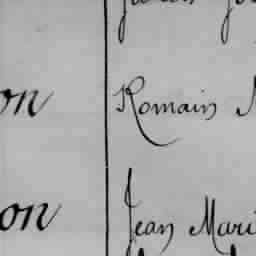 on Romain
on Jean Mari